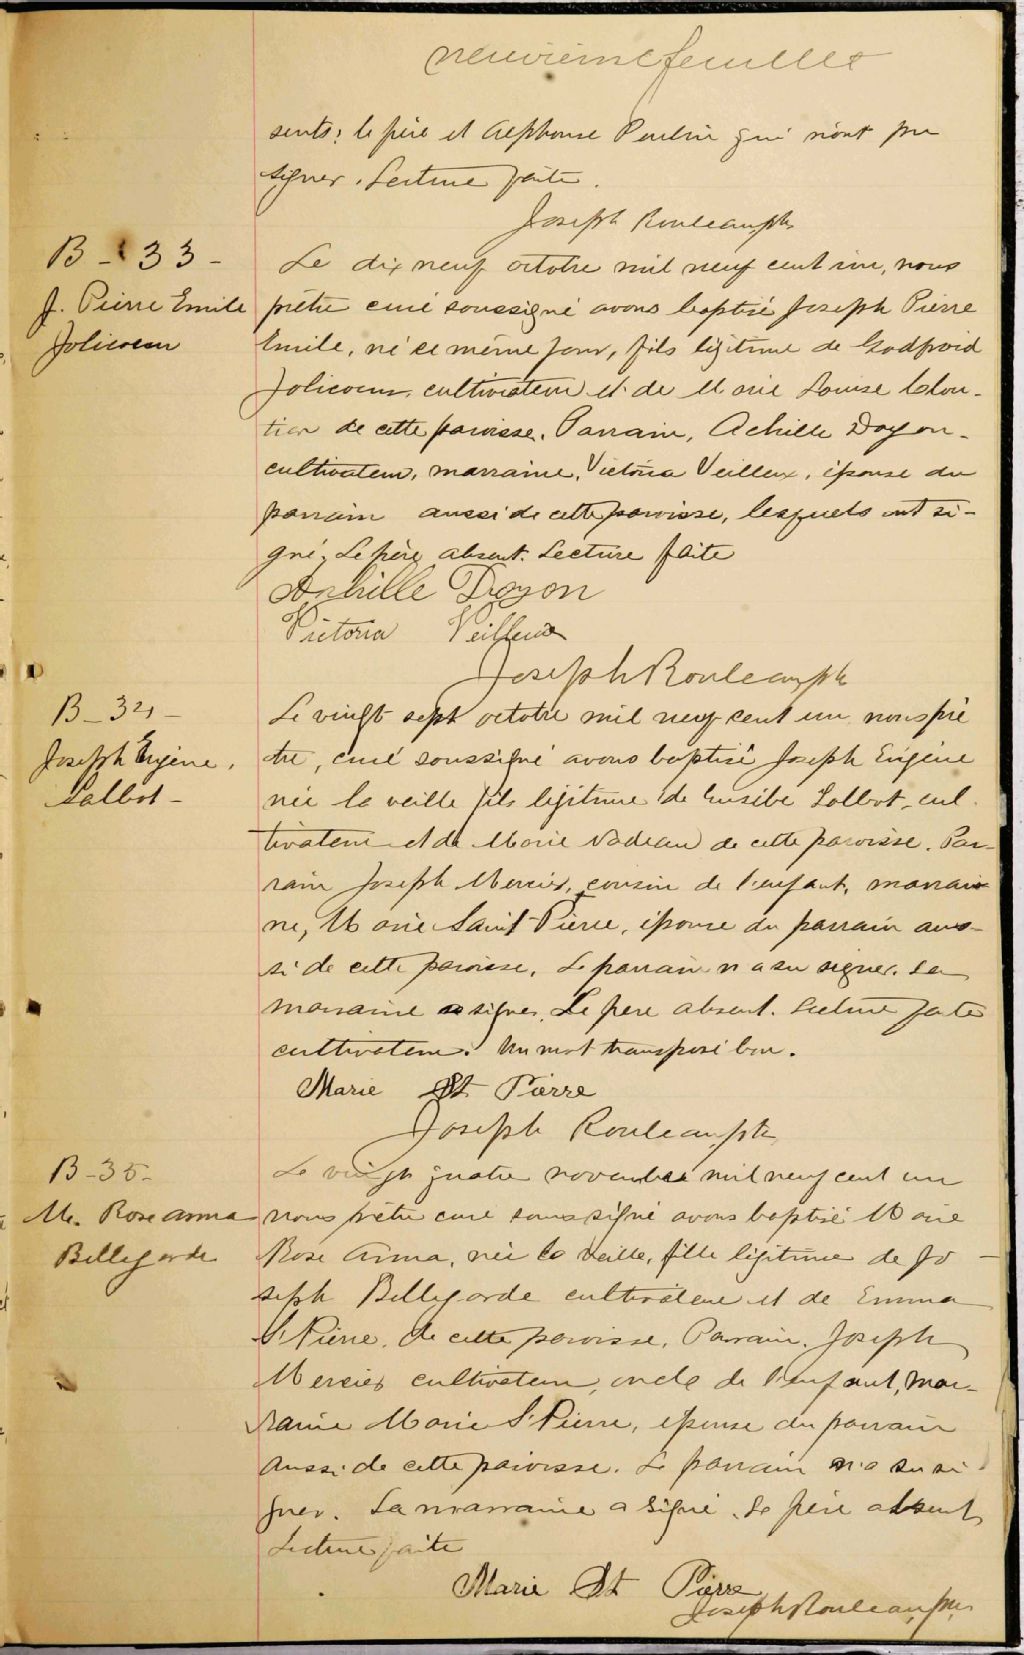 neuvieme feuillet
sents: le père et Alphonse Poulin qui n'ont pu
signer. Lecture faite.
Joseph Rouleau, ptre
B - 33 -
J. Pierre Emile
Jolicoeur
Le dix neuf octobre mil neuf cent un, nous
prêtre curé soussigné avons baptisé Joseph Pierre
Emile, né ce même jour, fils légitime de Godfroid
Jolicoeur, cultivateur et de Marie Louise Clou-
tier de cette paroisse. Parrain, Achille Doyon-
cultivateur, marraine, Victoria Veilleux, épouse du
parrain aussi de cette paroisse, lesquels ont si-
gné. Le père absent. Lecture faite
Achille Doyon
Victoria Veilleux
Joseph Rouleau, ptre
B - 34 -
Joseph Eugène
Lalbot -
Le vingt sept octobre mil neuf cent un, nous prê
tre, curé soussigné avons baptisé Joseph Eugène
née la veille fils légitime de Eusèbe Lalbot, cul
tivateur et de Marie Nadeau de cette paroisse. Par-
rain Joseph Mercier, cousin de l'enfant, marrai-
ne, Marie Saint-Pierre, épouse du parrain aus-
si de cette paroisse. Le parrain n'a su signer. La
marraine a signer. Le père absent. Lecture faite
cultivateur. Un mot transposé bon.
Marie St Pierre
Joseph Rouleau, ptre
B - 35 -
M. Rose anna
Bellegarde
Le vingt quatre novembre mil neuf cent un
nous prêtre curé soussigné avons baptisé Marie
Rose Anna, née la veille, fille légitime de Jo-
seph Bellegarde cultivateur et de Emma
St Pierre, de cette paroisse. Parrain, Joseph
Mercier cultivateur, oncle de l'enfant, mar-
raine Marie St Pierre, épouse du parrain
aussi de cette paroisse. Le parrain n'a su si
gner. La marraine a signé. Le père absent
Lecture faite
Marie St Pierre
Joseph Rouleau, ptre